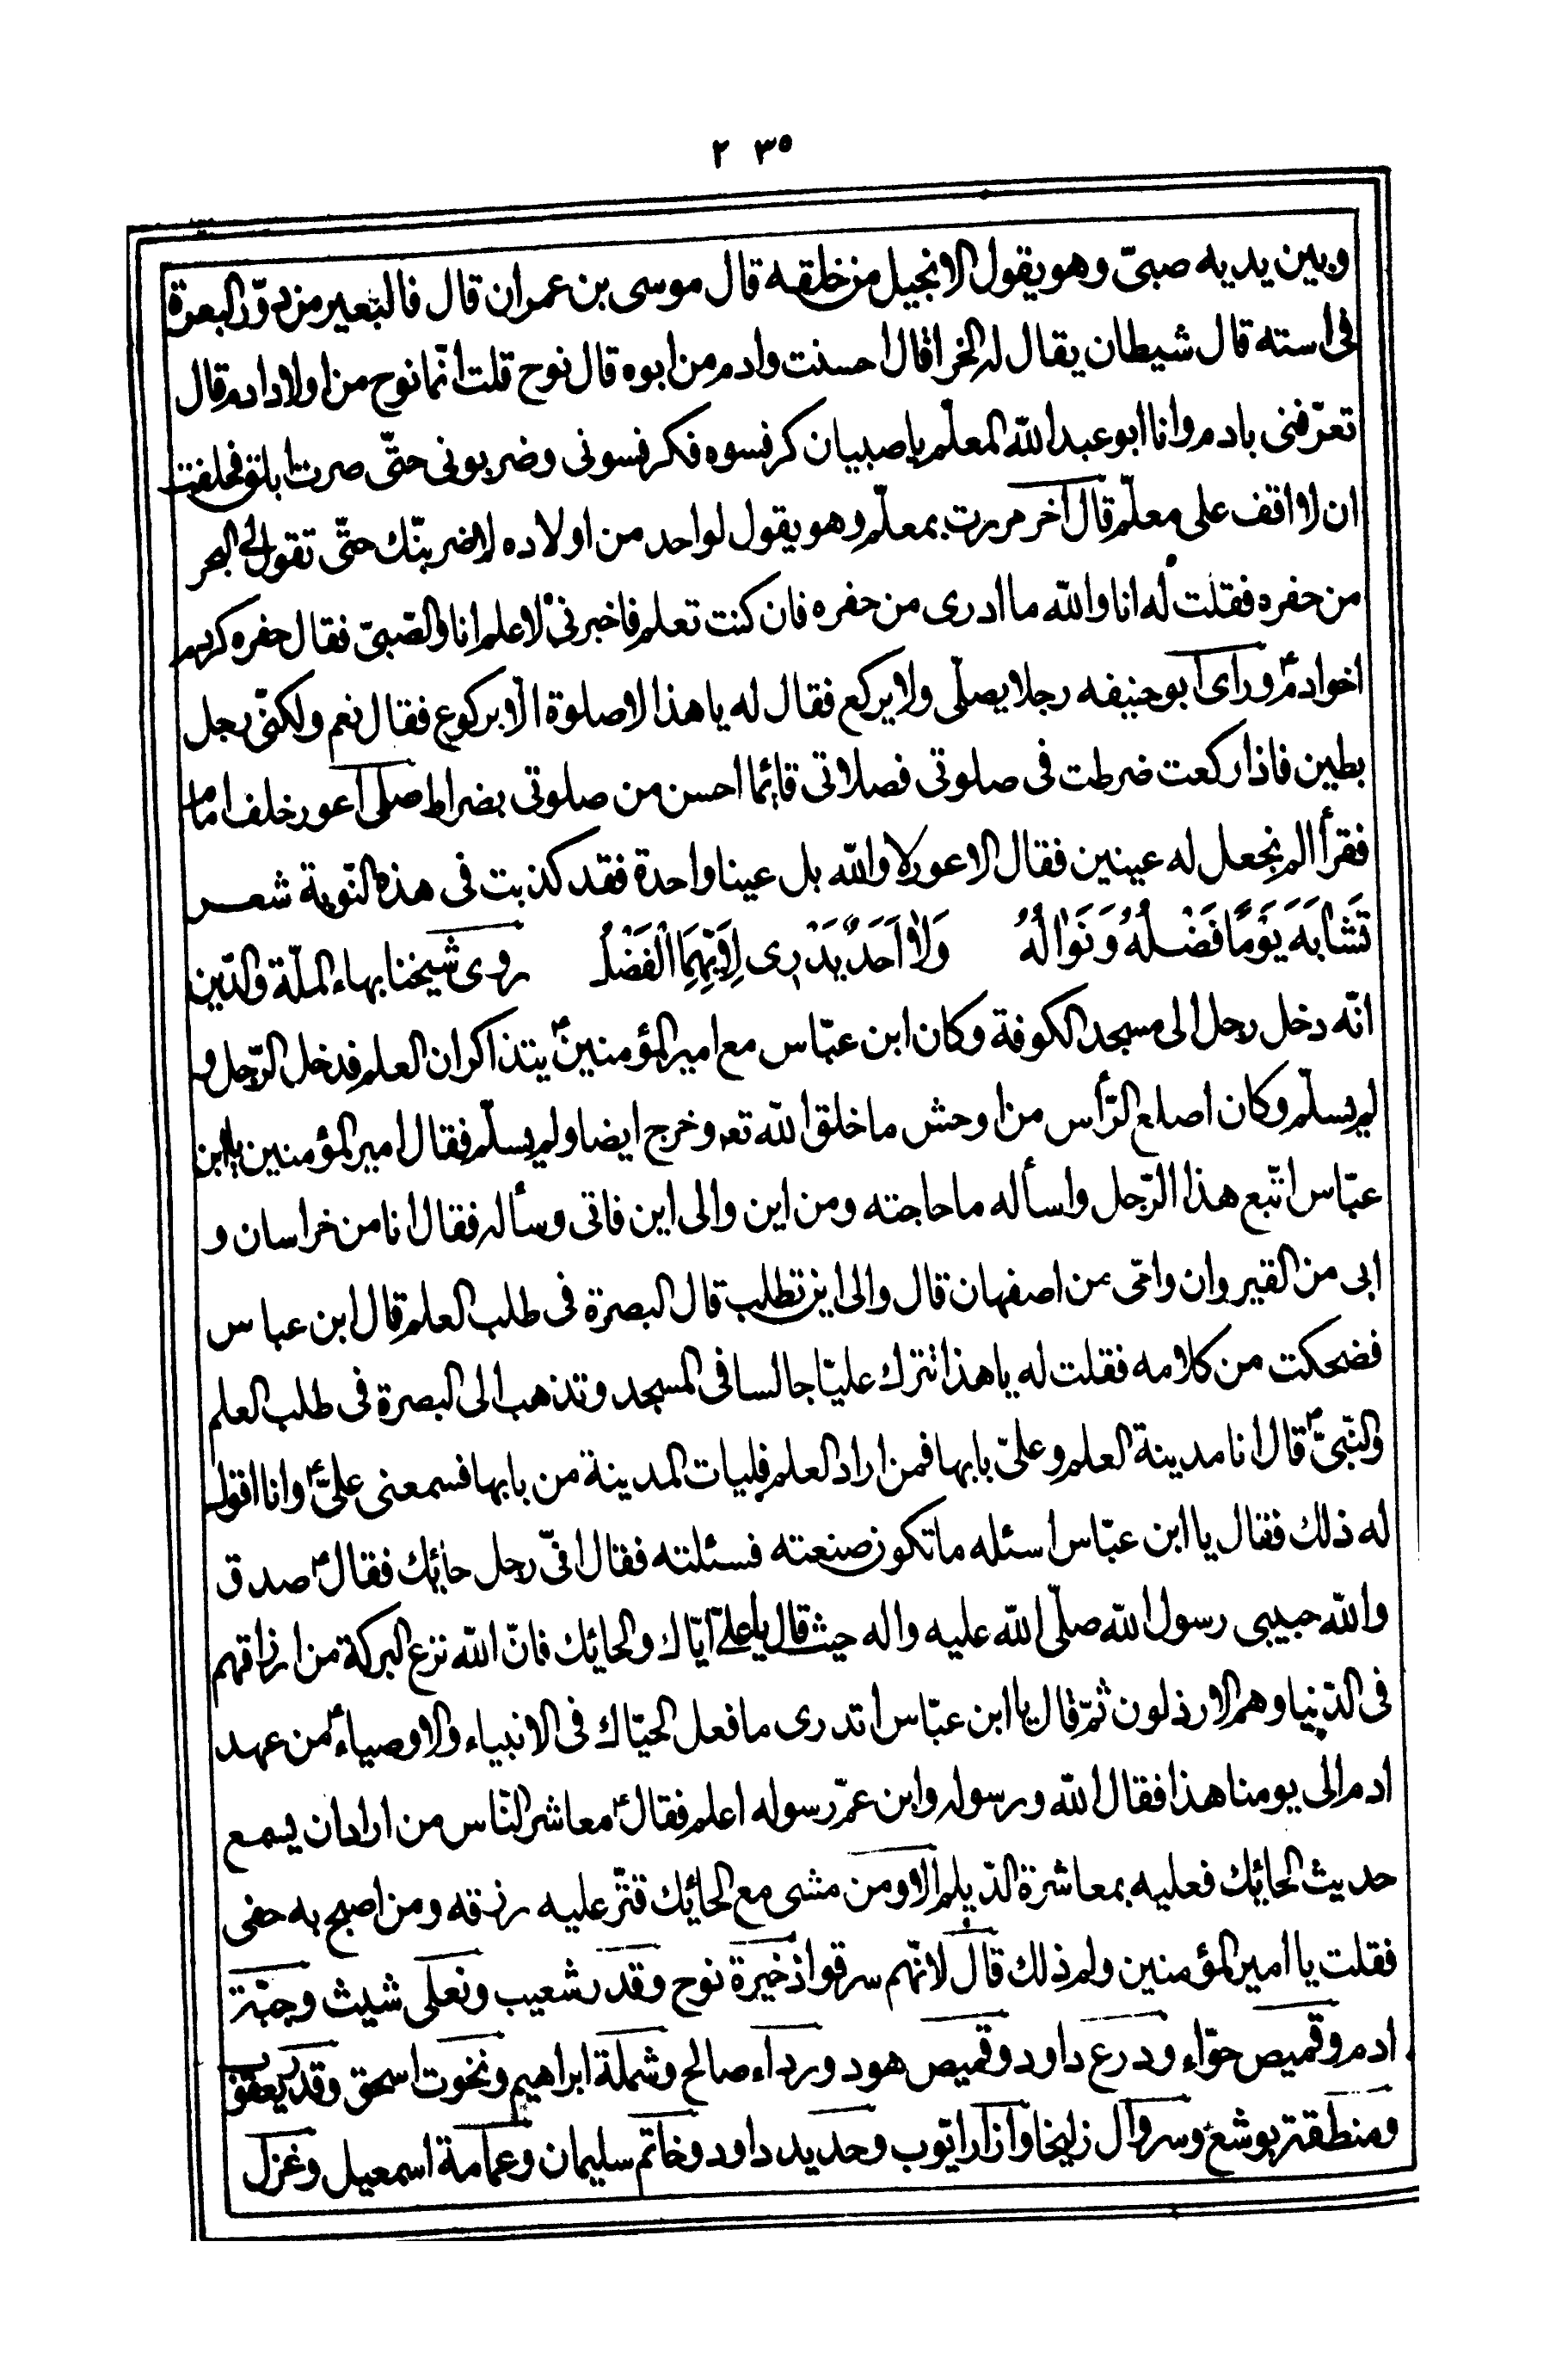 ٢٣٥
وبين يديه صبىّ وهو يقول الانجيل من خلقه قال موسى بن عمران قال فالبعير من دوّر البعرة
فى استه قال شيطان يقال له الخرا قال احسنت وادم من ابوه قال نوح قلت انّما نوح من اولاد ادم قال
تعرّفنى بادم وانا ابو عبد الله المعلّم يا صبيان كرفسوه فكرفسونى وضربونى حتّى صرت ابلق فحلفت
ان لا اقف على معلّم قال اخر مررت بمعلّم وهو يقول لواحد من اولاده لاضربنّك حتّى تقول لى البحر
من حفره فقلت له انا والله ما ادرى من حفره فان كنت تعلم فاخبرنى لاعلم انا والصّبىّ فقال حفره كردم
اخو ادم ع وراى ابو حنيفه رجلا يصلّى ولا يركع فقال له يا هذا لا صلوة الّا بركوع فقال نعم ولكنّى رجل
بطين فاذا ركعت ضرطت فى صلوتى فصلاتى قائما احسن من صلوتى بضراط صلى اعور خلف امام
فقرأ الم نجعل له عينين فقال الاعور لا والله بل عينا واحدة فقد كذبت فى هذه النّوبة شعر
تَشَابَهَ يَوْمًا فَضْلُهُ وَنَوَالُهُ وَلَا اَحَدٌ يَدْرِى لِاَيِّهِمَا الْفَضْلُ روى شيخنا بهاء الملّة والدّين
انّه دخل رجل الى مسجد الكوفة وكان ابن عبّاس مع امير المؤمنين ع يتذاكران العلم فدخل الرّجل و
لم يسلّم وكان اصلع الرّأس من اوحش ما خلق الله تعه وخرج ايضا ولم يسلّم فقال امير المؤمنين يا ابن
عبّاس اتّبع هذا الرّجل واسأله ما حاجته ومن اين والى اين فاتى وسأله فقال انا من خراسان و
ابى من القيروان وامّى من اصفهان قال والى اين تطلب قال البصرة فى طلب العلم قال ابن عباس
فضحكت من كلامه فقلت له يا هذا تترك عليّا جالسا فى المسجد وتذهب الى البصرة فى طلب العلم
والنّبىّ ص قال انا مدينة العلم وعلىّ بابها فمن اراد العلم فليات المدينة من بابها فسمعنى علىّ ع وانا اقول
له ذلك فقال يا ابن عبّاس اسئله ما تكون صنعته فسئلته فقال انّى رجل حائك فقال ع صدق
والله حبيبى رسول الله صلّى الله عليه واله حيث قال يا علىّ ايّاك والحائك فانّ الله نزع البركة من ارزاقهم
فى الدّنيا وهم الارذلون ثمّ قال يا ابن عبّاس اتدرى ما فعل الحيّاك فى الانبياء والاوصياء ع من عهد
ادم الى يومنا هذا فقال الله ورسوله وابن عمّ رسوله اعلم فقال ع معاشر النّاس من اراد ان يسمع
حديث الحائك فعليه بمعاشرة الدّيلم الا ومن مشى مع الحائك قتّر عليه رزقه ومن اصبح به حفى
فقلت يا امير المؤمنين ولم ذلك قال لانّهم سرقوا ذخيرة نوح وقدر شعيب ونعلى شيث وجبّة
ادم وقميص حوّاء ودرع داود وقميص هود ورداء صالح وشملة ابراهيم ونخوت اسحق وقدر يعقوب
ومنطقة يوشع وسروال زليخا وازار ايّوب وحديد داود وخاتم سليمان وعمامة اسمعيل وغزل